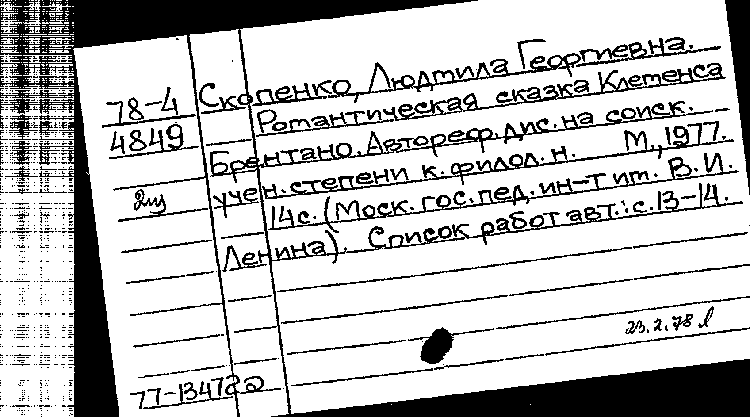 78-4
4849
2из
Скопенко, Людмила Георгиевна.
Романтическая сказка Клеменса
Брентано. Автореф. дис. на соиск.
учен. степени к. филол. н. М., 1977.
14с. (Моск. гос. пед. ин-т им. В. И.
Ленина). Список работ авт.: с. 13-14.
23.2.78
77-13472